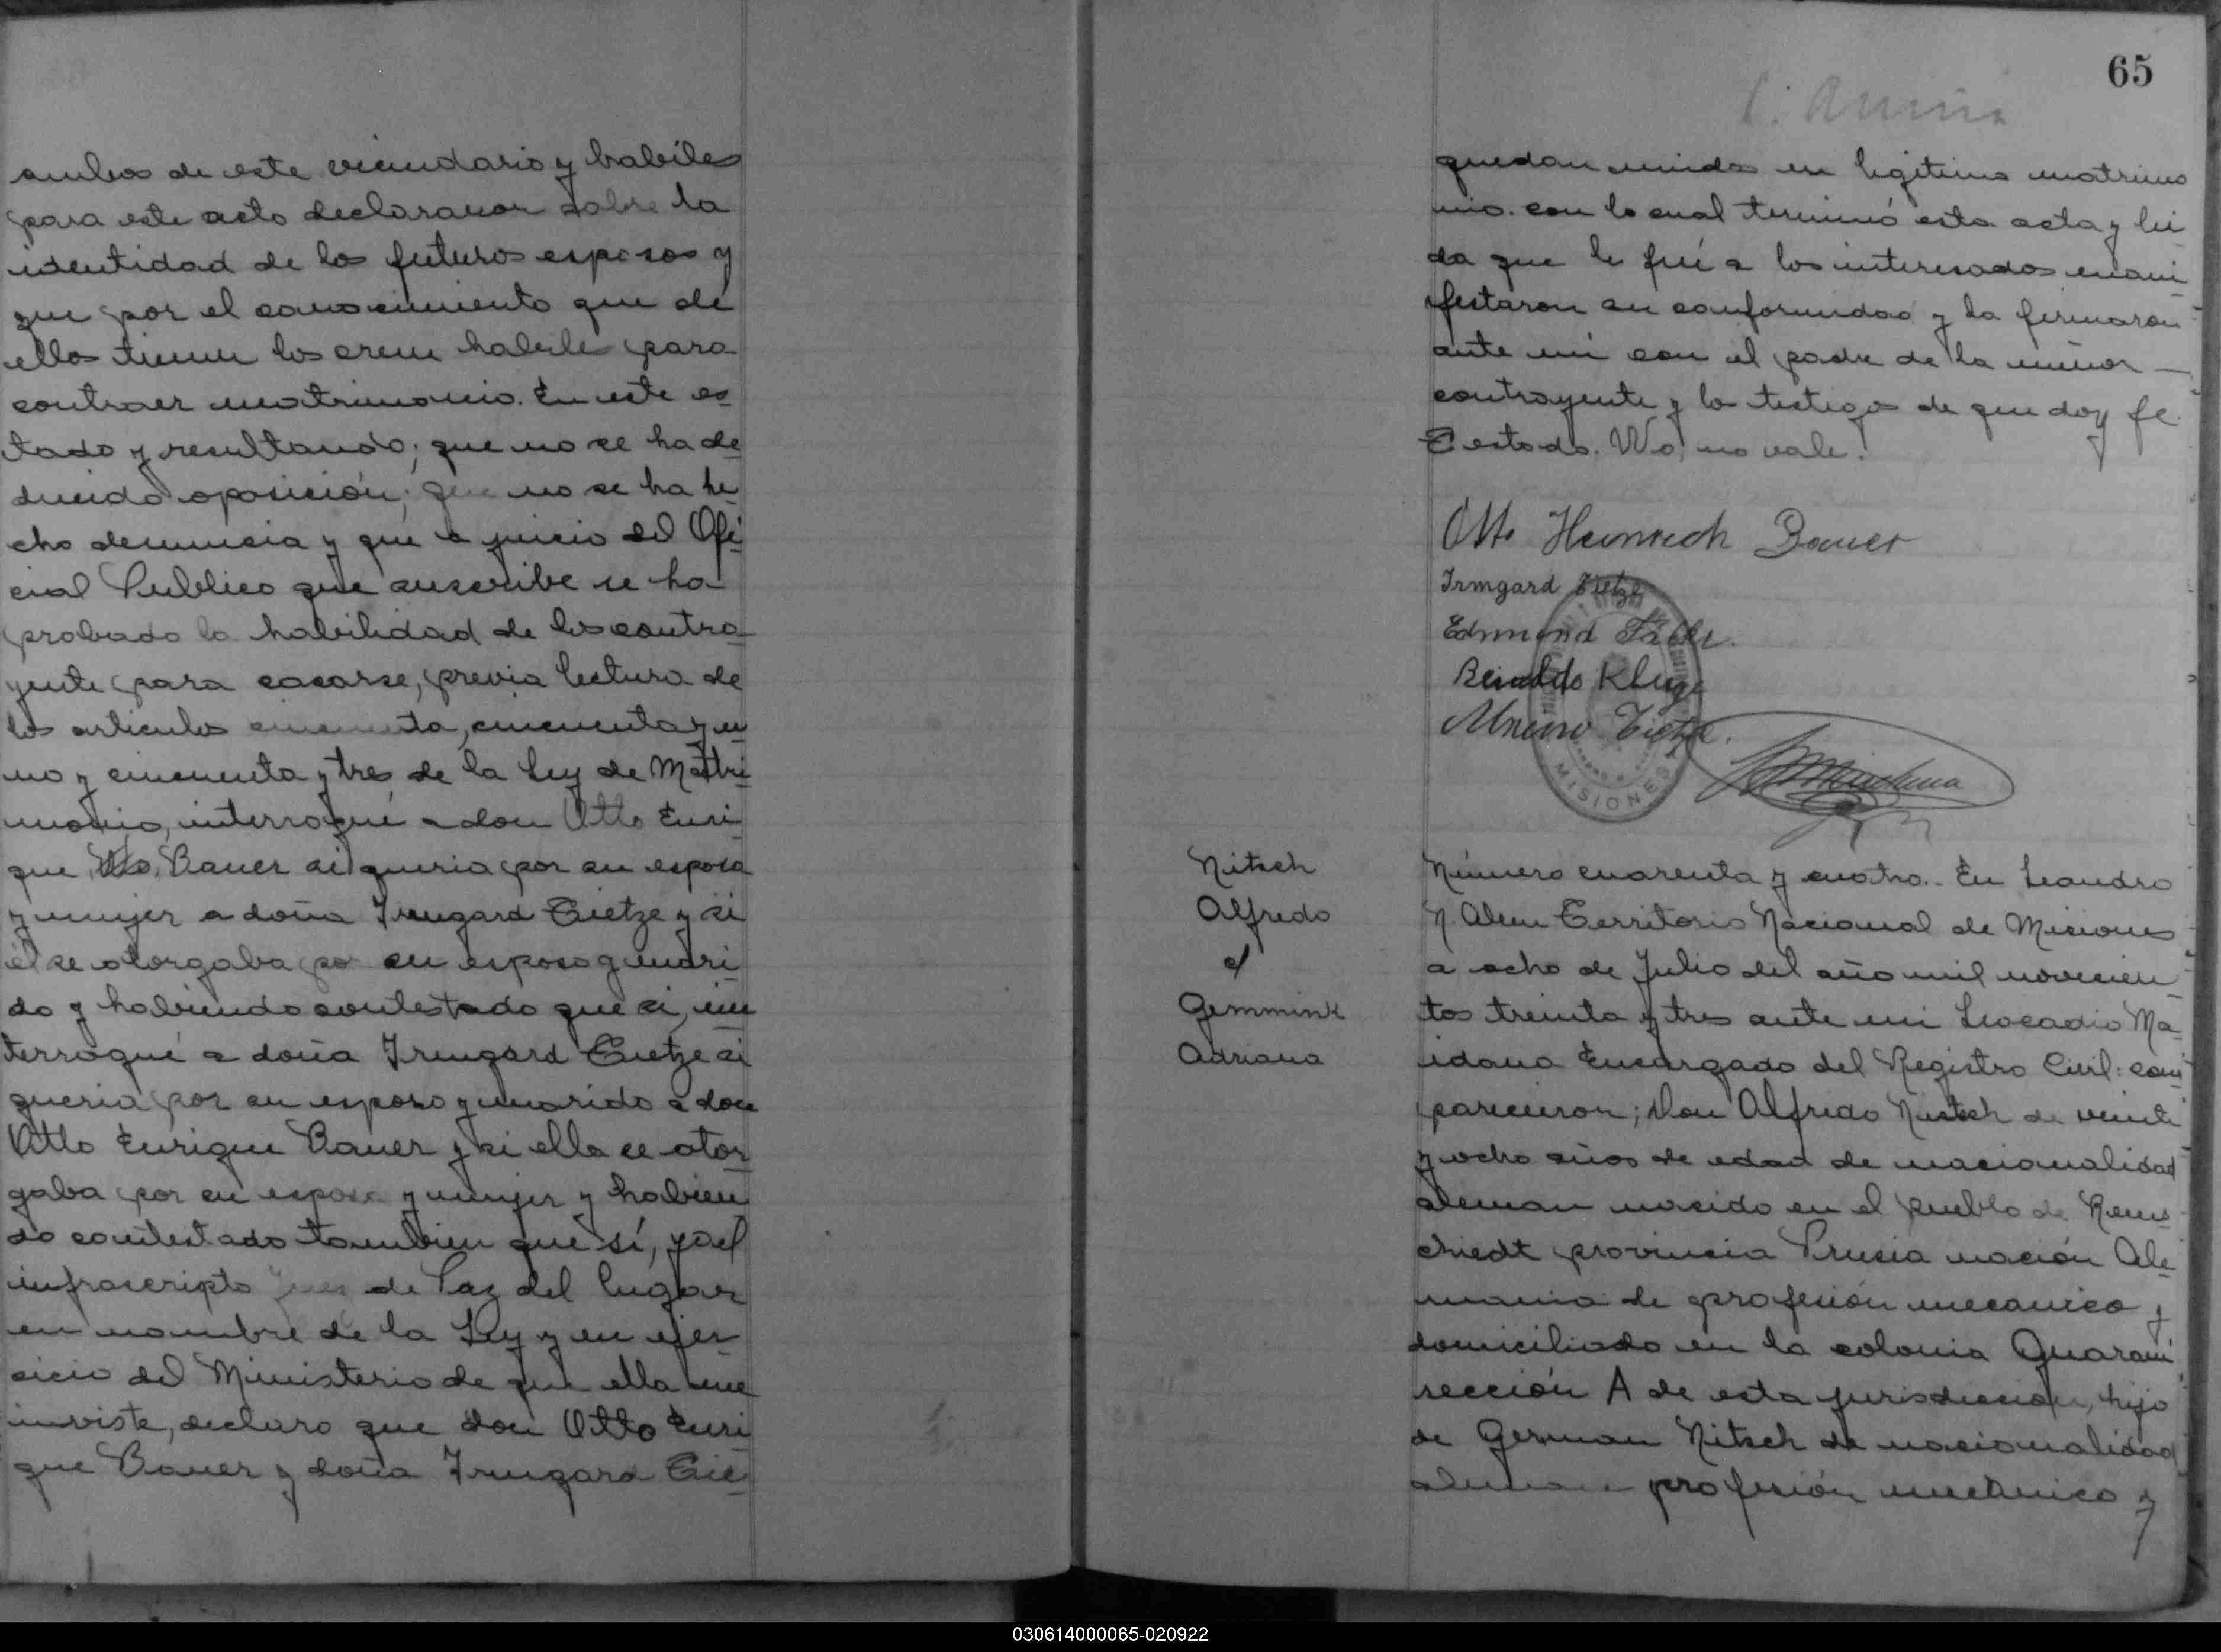 ambos de este vecindario y habiles
para este acto declararon sobre la
identidad de los futuros esposos y
que por el conocimiento que de
ellos tienen los creen habiles para
contraer matrimonio. En este es
tado y resultando; que no se ha de
ducido oposición; que no se ha he
cho denuncia y que a juicio del Ofi
cial Publico que suscribe se ha
probado la habilidad de los contra
yente para casarse, previa lectura de
los articulos cincuenta, cincuenta y u
no y cincuenta y tres de la Ley de Matri
monio, interroqué a don Otto Enri
que Wo, Bauer si queria por su esposa
y mujer a doña Irmgard Tietze y si
él se otorgaba por su esposo y mari
do y habiendo contestado que si, in
terroqué a doña Irmgard Tietze si
queria por su esposo y marido a don
Otto Enrique Bauer y si ella se otor
gaba por su esposa y mujer y habien
do contestado tambien que sí, yo el
infrascripto Juez de Paz del lugar
en nombre de la Ley y en ejer
cicio del Ministerio de que ella me
inviste, declaro que don Otto Enri
que Bauer y doña Irmgard Tie
65
quedan unidos en legitimo matrimo
nio. con lo cual terminó esta acta y lei
da que le fué a los interesados mani
festaron su conformidad y la firmaron
ante mi con el padre de la menor
contrayente y los testigos de que doy fe.
Testado. Wo, no vale.
Otto Heinrich Bauer
Irmgard Tietze
Edmund
Reinaldo Kluge
Tietze.
MISIONES
Nitsch
Alfredo
c/
Gemmink
Adriana
Número cuarenta y cuatro.. En Leandro
N. Alem Territorio Nacional de Misiones
a ocho de Julio del año mil novecien
tos treinta y tres ante mi Leocadio Ma
idana Encargado del Registro Civil: com
parecieron; Don Alfredo Nitsch de veinte
y ocho años de edad de nacionalidad
aleman nacido en el pueblo de Rems
chiedt provincia Prusia nación Ale
mania de profesión mecanico y
domiciliado en la colonia Guarani
sección A de esta jurisdiccion, hijo
de German Nitsch de nacionalidad
aleman profesión mecanico y
030614000065-020922